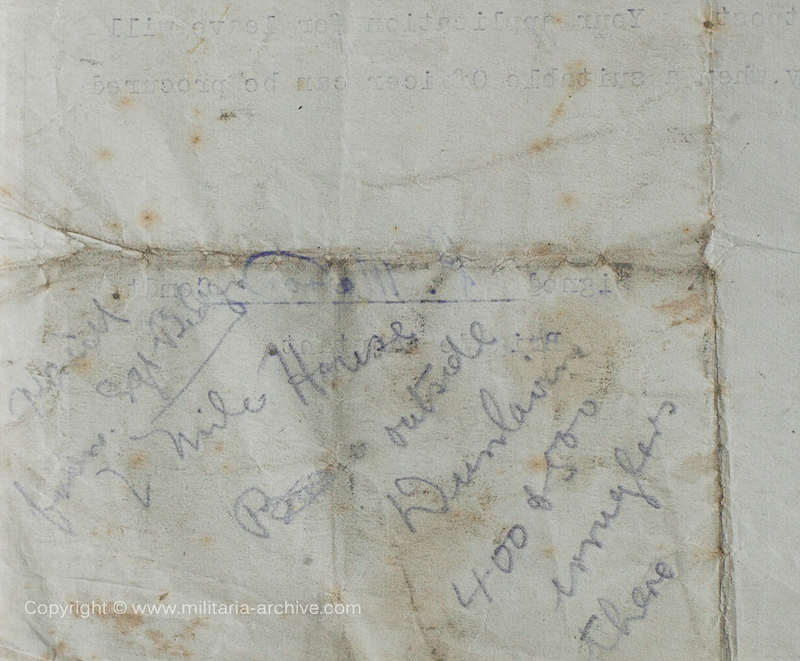 Your application for leave will
when a suitable Officer can be procured
igned
Comdt
from. Sgt
2 Mile House
outside
Dunlavin
400 or 500
irregulars
there
Copyright © www.militaria-archive.com